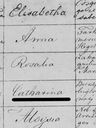 Elisabetha
Anna
Rosalia
Catharina
Aloysia